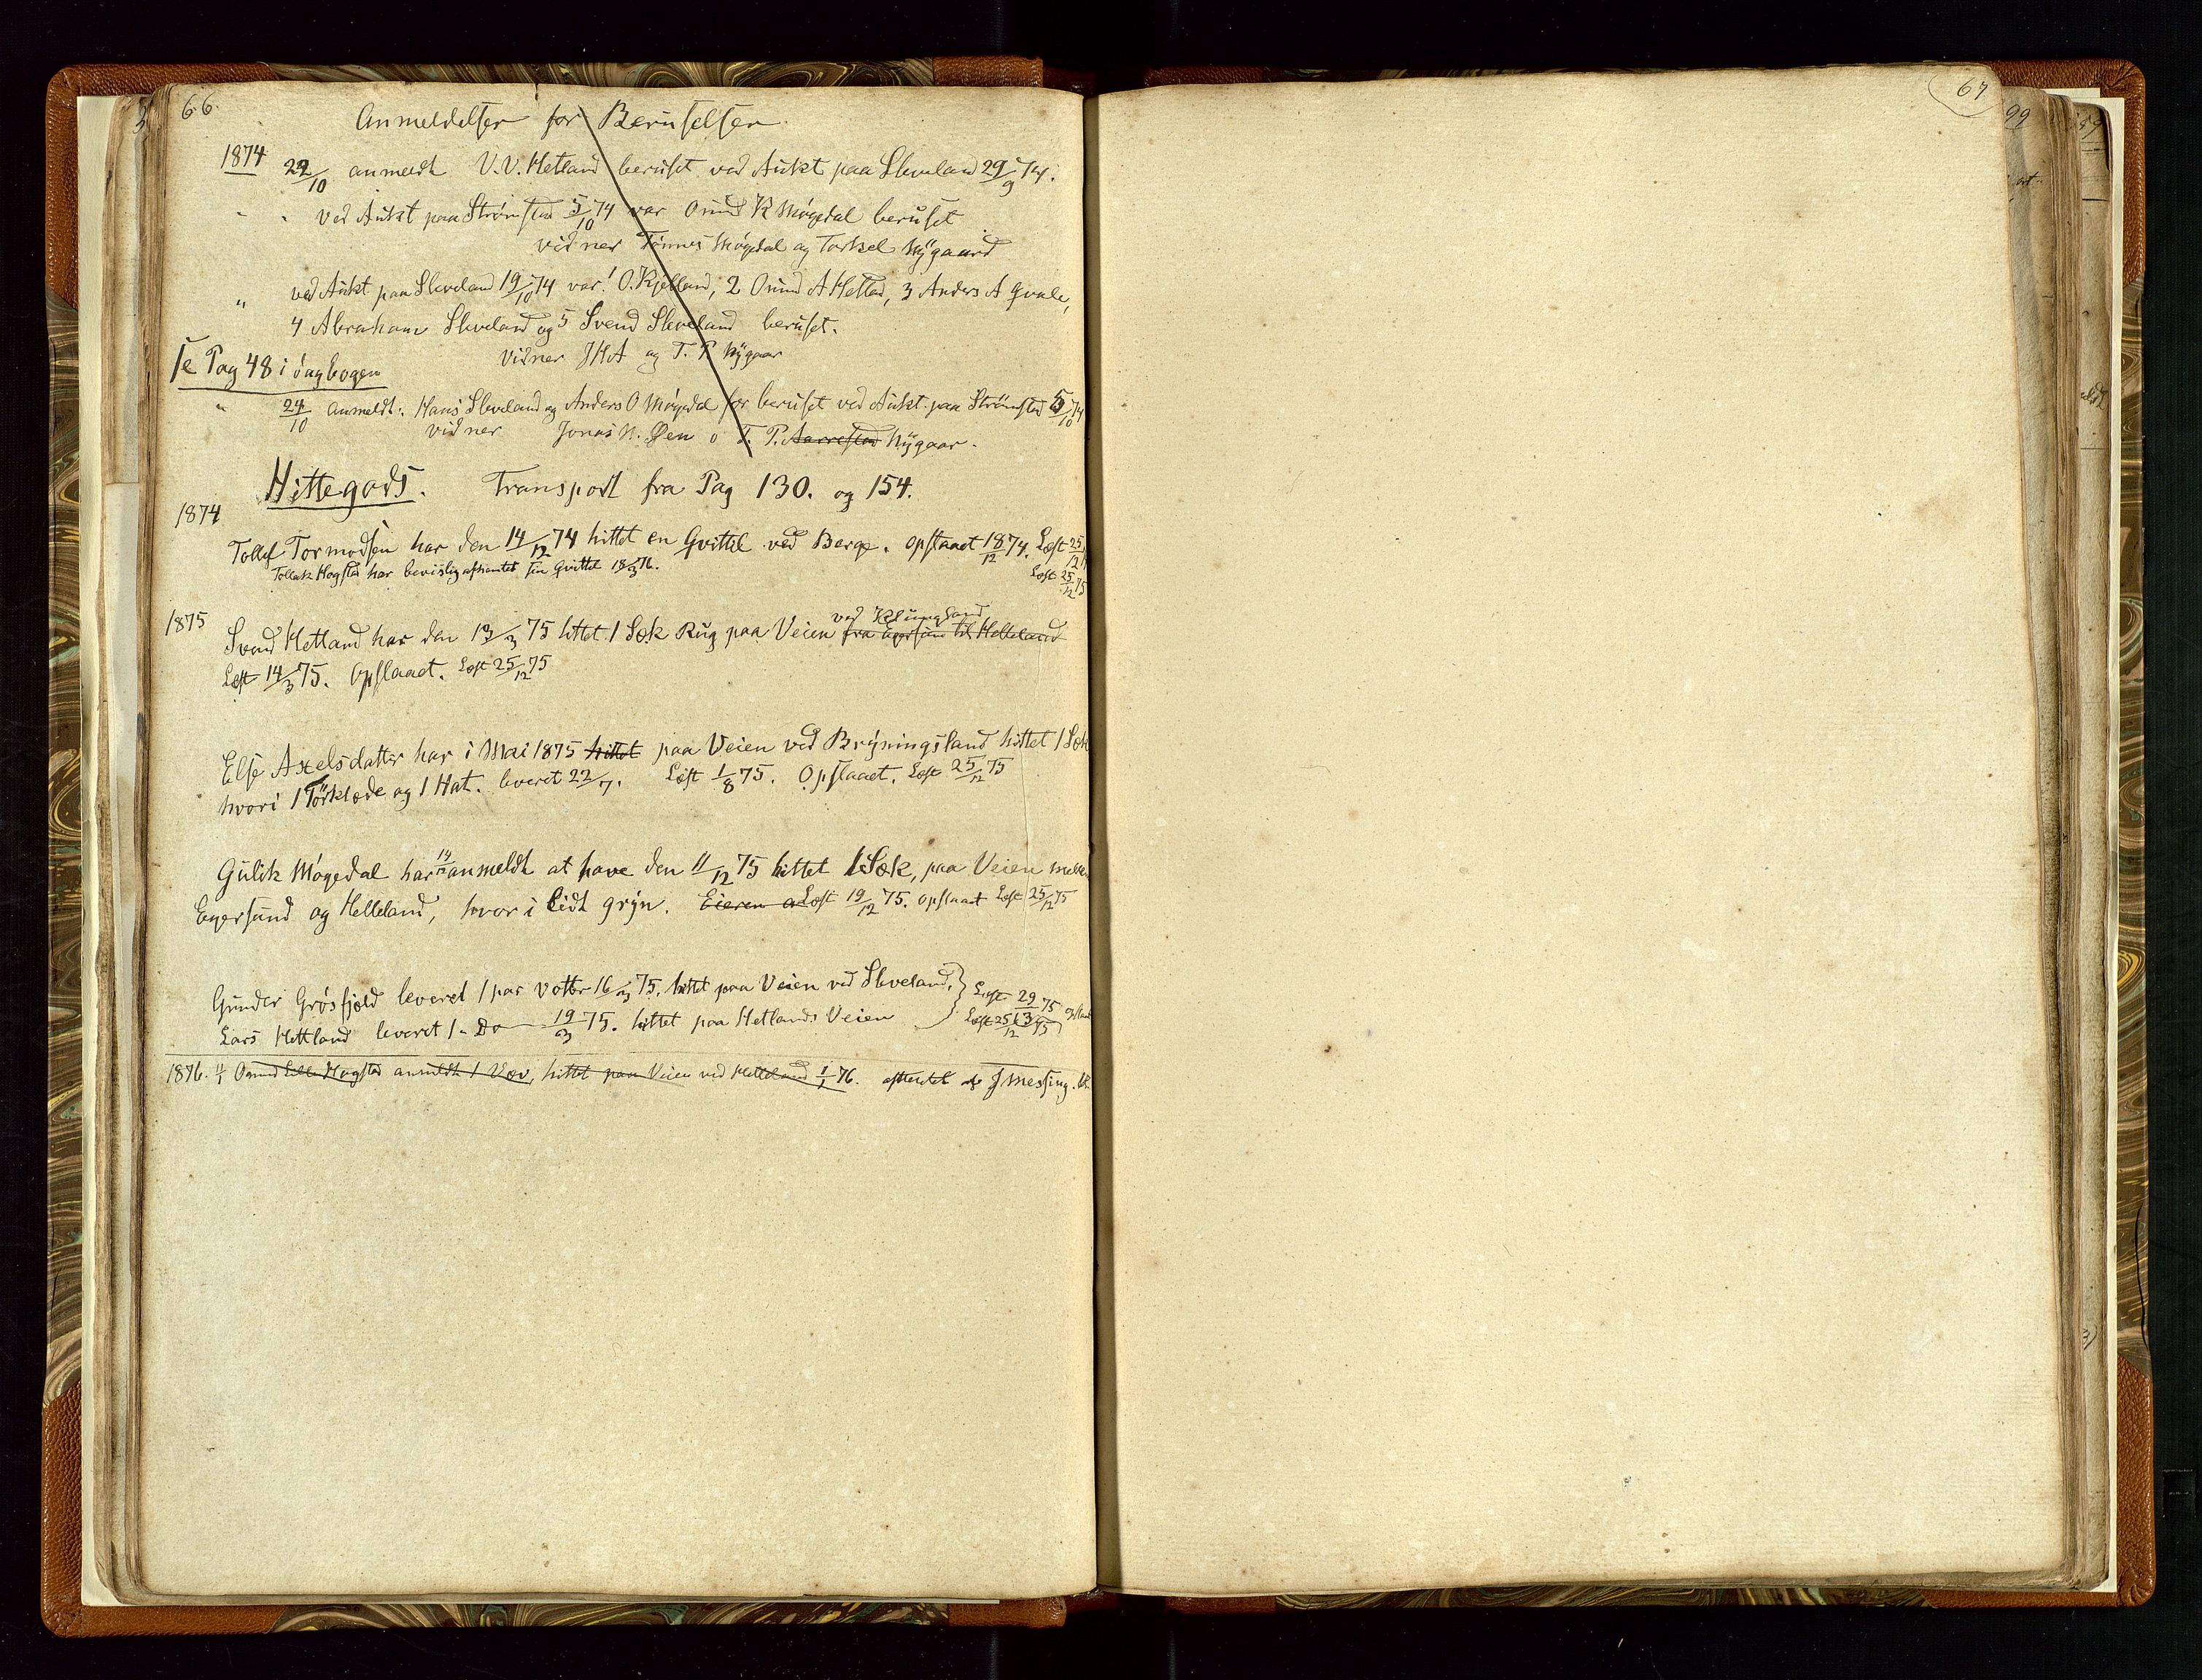 66.
Anmeldelser for Beruselser
1874 22/10 anmeldt V.V. Hetland beruset ved Aukt paa Sleveland 29/9 74.
" " ved Aukt paa Strømstad 5/10 74 var Omund K Møgedal beruset
vidner Tønnes Møgedal og Torkel Nÿgaard
" ved Aukt paa Sleveland 19/10 74 var 1 O. Kjelland, 2 Omund A Hetlad, 3 Anders A Qvale,
4 Abraham Sleveland og 5 Svend Sleveland beruset.
Vidner JHA og T. P. Nÿgaar
se Pag 48 i dagbogen
" 24/10 anmeldt: Hans Sleveland og Anders O Møgedal for beruset ved Aukt. paa Strømstad 5/10 74
vidner Jonas N. Øen o T. P. Aarrestad Nÿgaar.
Hittegods. Transport fra Pag 130. og 154.
1874
Tollef Tormodsen har den 14/12 74 hittet en Qvittel ved Berge. opslaaet 18/12 74. Læst 25/12
Tollak Hogstad har bevislig afhentet sin Qvittel 18/3 76. Læst 25/12 75
1875
ved Klungland
Svend Hetland har den 13/3 75 hittet 1 Sæk Rug paa Veien fra Egersund til Helleland
Læst 14/3 75. Opslaaet. Læst 25/12 75
Else Axelsdatter har i Mai 1875 hittet paa Veien ved Brÿningsland hittet 1 Sæk
hvori 1 Tørklæde og 1 Hat. leveret 22/7. Læst 1/8 75. Opslaaet. Læst 25/12 75
Gulik Møgedal har 14/12 anmeldt at have den 11/12 75 hittet 1 Sæk, paa Veien mellem
Egersund og Helleland, hvori lidt grÿn. Eieren a Læst 19/12 75. opslaaet Læst 25/12 75
Gunder Grøsfjeld leveret 1 par votter 16/3 75. hittet paa Veien ved Sleveland. } Læst 29/3 75
Lars Hettland leveret 1 Do 19/3 75. hittet paa Hetlands Veien Læst 25/12 75
1876. 11/1 Omund Lille Hogstad anmeldt 1 Væv, hittet paa Veien ved Helleland 1/1 76. afhentet af J Messing.
67
99